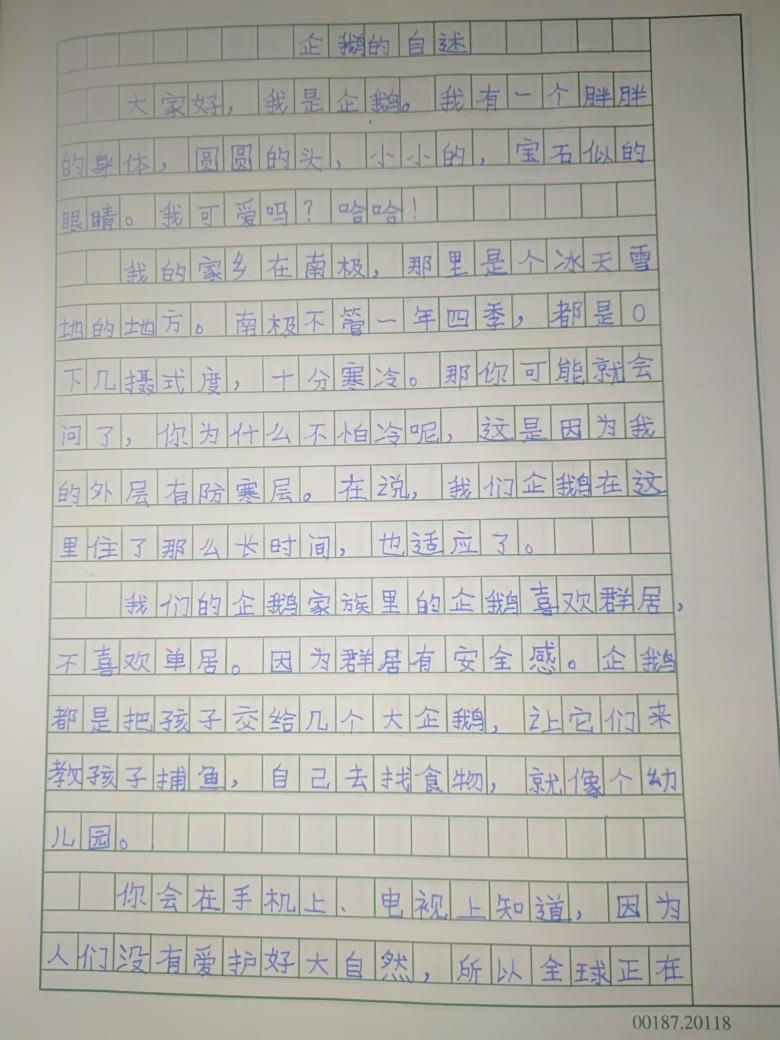 企鹅的自述
大家好，我是企鹅。我有一个胖胖
的身体，圆圆的头，小小的，宝石似的
眼睛。我可爱吗？哈哈！
我的家乡在南极，那里是个冰天雪
地的地方。南极不管一年四季，都是0
下几摄式度，十分寒冷。那你可能就会
问了，你为什么不怕冷呢，这是因为我
的外层有防寒层。在说，我们企鹅在这
里住了那么长时间，也适应了。
我们的企鹅家族里的企鹅喜欢群居，
不喜欢单居。因为群居有安全感。企鹅
都是把孩子交给几个大企鹅，让它们来
教孩子捕鱼，自己去找食物，就像个幼
儿园。
你会在手机上、电视上知道，因为
人们没有爱护好大自然，所以全球正在
00187.20118